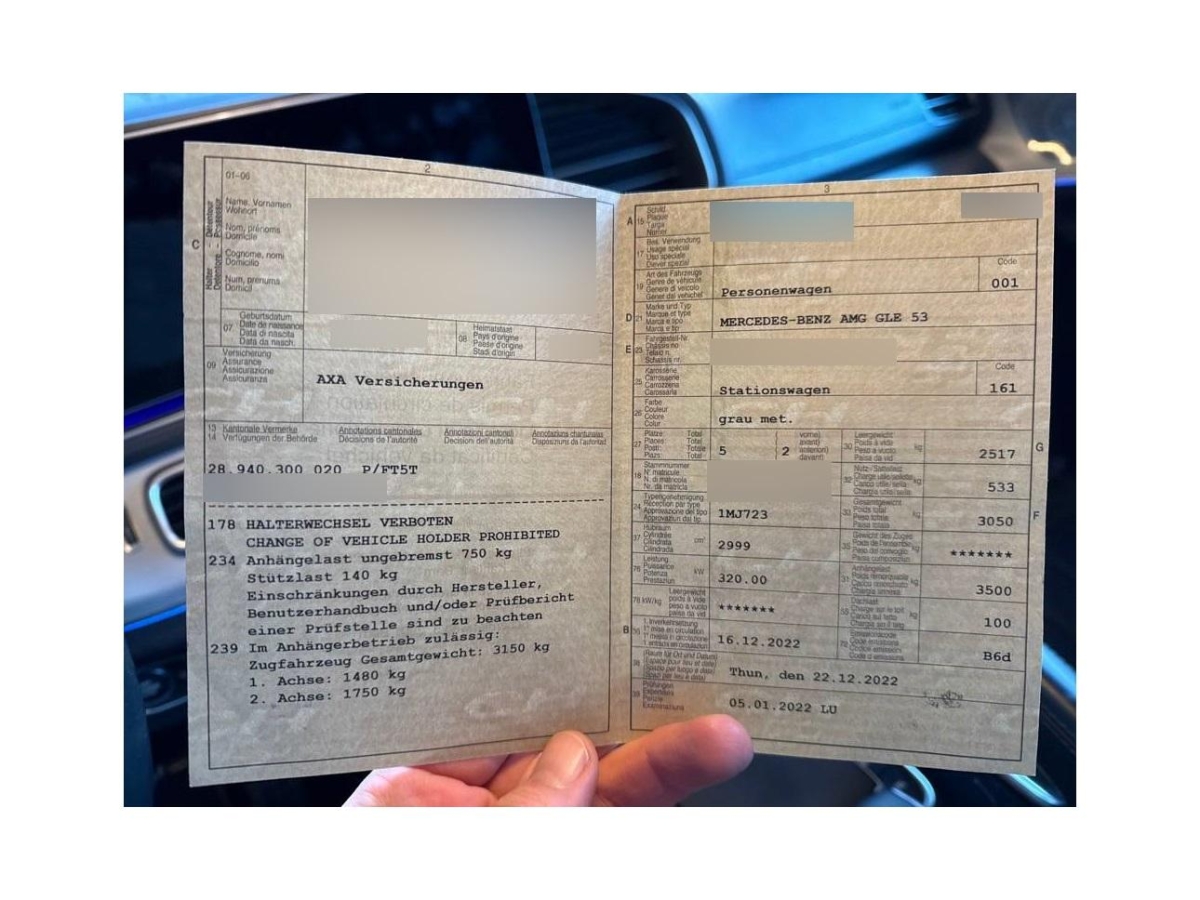 2
01-06
C
Halter
Détenteur
Detentore
Possessur
Name, Vornamen
Wohnort
Nom, prénoms
Domicile
Cognome, nomi
Domicilio
Num, prenums
Domicil
07
Geburtsdatum
Date de naissance
Data di nascita
Data da nasch.
08
Heimatstaat
Pays d'origine
Paese d'origine
Stadi d'origin
09
Versicherung
Assurance
Assicurazione
Assicuranza
AXA Versicherungen
13
14
Kantonale Vermerke
Verfügungen der Behörde
Annotations cantonales
Décisions de l'autorité
Annotazioni cantonali
Decisioni dell'autorità
Annotaziuns chantunalas
Disposiziuns da l'autoritad
28.940.300 020 P/FT5T
178 HALTERWECHSEL VERBOTEN
CHANGE OF VEHICLE HOLDER PROHIBITED
234 Anhängelast ungebremst 750 kg
Stützlast 140 kg
Einschränkungen durch Hersteller,
Benutzerhandbuch und/oder Prüfbericht
einer Prüfstelle sind zu beachten
239 Im Anhängerbetrieb zulässig:
Zugfahrzeug Gesamtgewicht: 3150 kg
1. Achse: 1480 kg
2. Achse: 1750 kg
3
A
15
Schild
Plaque
Targa
Numer
17
Bes. Verwendung
Usage spécial
Uso speciale
Diever spezial
19
Art des Fahrzeugs
Genre de véhicule
Genere di veicolo
Gener dal vehichel
Personenwagen
Code
001
D
21
Marke und Typ
Marque et type
Marca e tipo
Marca e tip
MERCEDES-BENZ AMG GLE 53
E
23
Fahrgestell-Nr.
Châssis no
Telaio n.
Schassis nr.
25
Karosserie
Carrosserie
Carrozzeria
Carossaria
Stationswagen
Code
161
26
Farbe
Couleur
Colore
Colur
grau met.
27
Plätze: Total
Places: Total
Posti: Totale
Plazs: Total
5
2
vorne)
avant)
anteriori)
davant)
30
Leergewicht
Poids à vide
Peso a vuoto
Paisa da vid
kg
2517
G
18
Stammnummer
N° matricule
N. di matricola
Nr. da matricla
32
Nutz-/Sattellast
Charge utile/sellette
Carico utile/sella
Chargia utila/sella
kg
533
24
Typengenehmigung
Réception par type
Approvazione del tipo
Approvaziun dal tip
1MJ723
33
Gesamtgewicht
Poids total
Peso totale
Paisa totala
kg
3050
F
37
Hubraum
Cylindrée
Cilindrata
Cilindrada
cm³
2999
35
Gewicht des Zuges
Poids de l'ensemble
Peso del convoglio
Paisa cumposiziun
kg
*******
76
Leistung
Puissance
Potenza
Prestaziun
kW
320.00
31
Anhängelast
Poids remorquable
Carico rimorchiabile
Chargia annexa
kg
3500
78 kW/kg
Leergewicht
poids à vide
peso a vuoto
paisa da vid
*******
55
Dachlast
Charge sur le toit
Carico sul tetto
Chargia sin il tetg
kg
100
B
36
1. Inverkehrsetzung
1re mise en circulation
1a messa in circolazione
1. entrada en circulaziun
16.12.2022
72
Emissionscode
Code émissions
Codice emissioni
Code d'emissiuns
B6d
38
(Raum für Ort und Datum)
(Espace pour lieu et date)
(Spazio per luogo e data)
(Spazi per lieu e data)
Thun, den 22.12.2022
39
Prüfungen
Expertises
Perizie
Examinaziuns
05.01.2022 LU